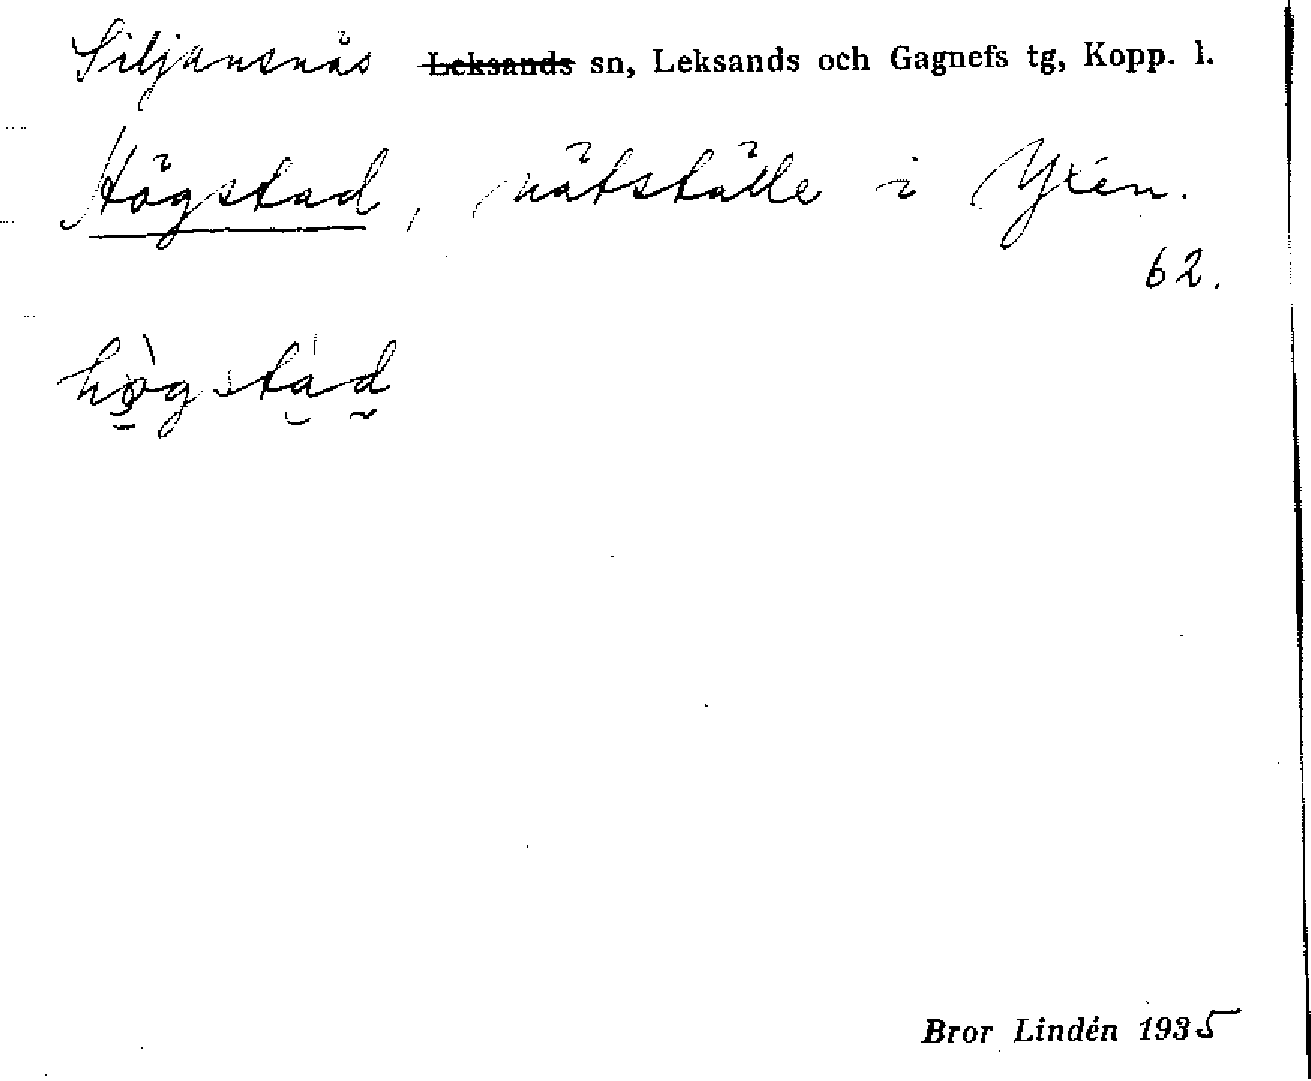 Siljansnäs Leksands sn, Leksands och Gagnefs tg, Kopp. l.
Högstad, nätställe i Yxen.
62.
högstad
Bror Lindén 1935